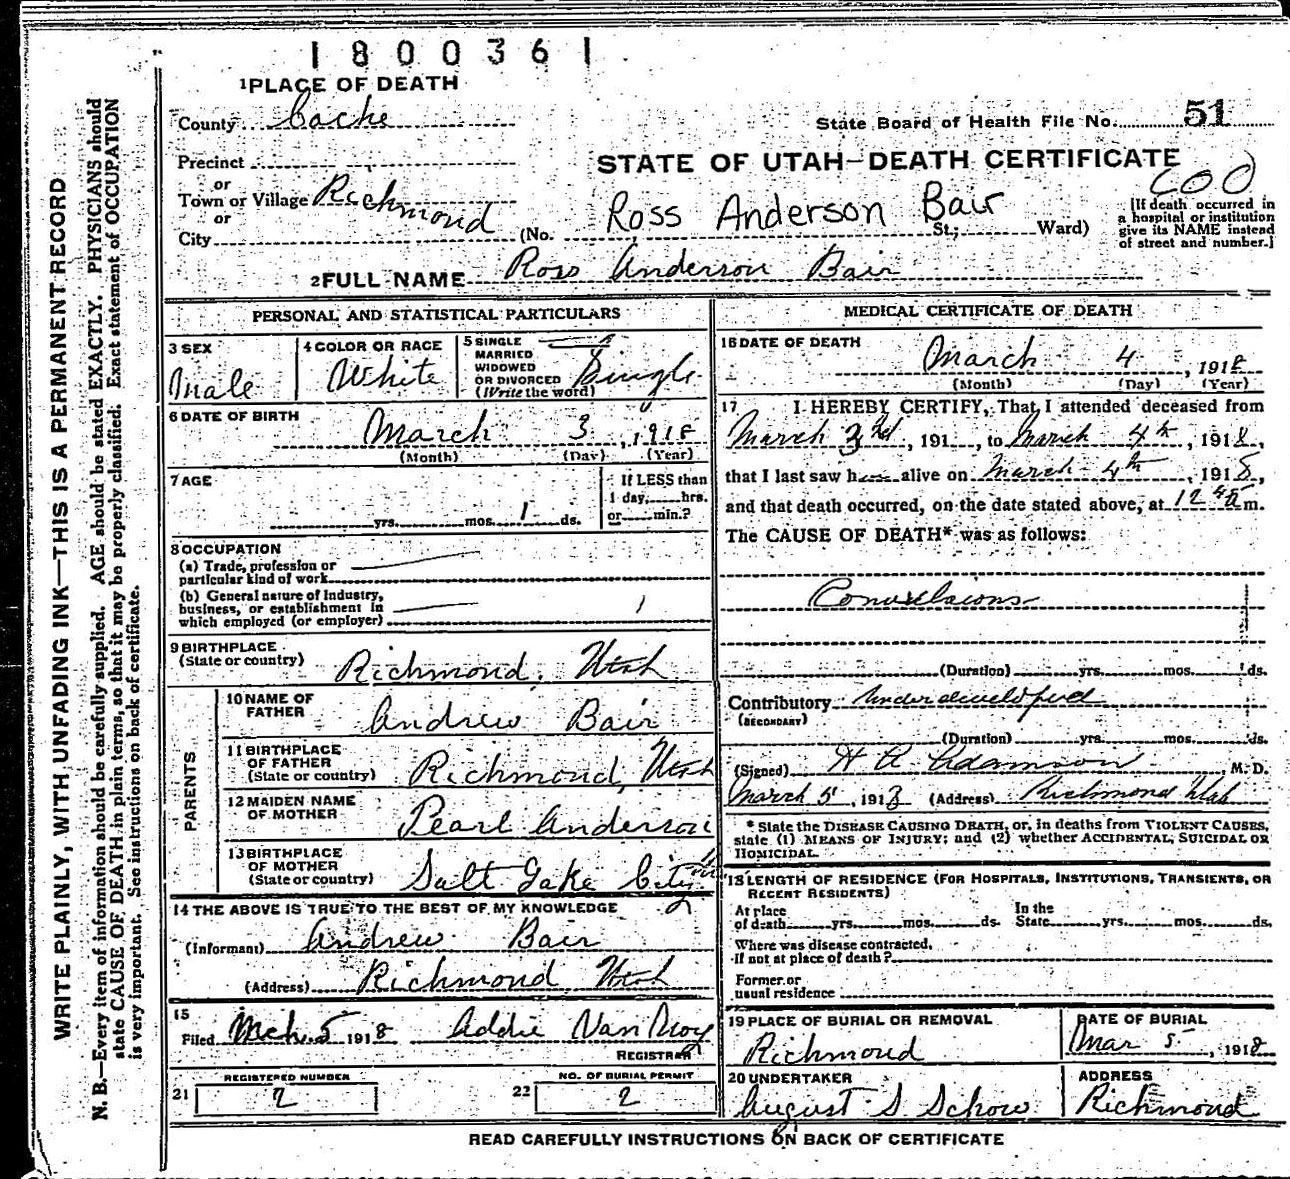 1800361
1 PLACE OF DEATH
County Cache
State Board of Health File No. 51
Precinct
STATE OF UTAH—DEATH CERTIFICATE
or
Town or Village Richmond
or
City (No. Ross Anderson Bair St.; Ward)
[If death occurred in
a hospital or institution
give its NAME instead
of street and number.]
2 FULL NAME Ross Anderson Bair
PERSONAL AND STATISTICAL PARTICULARS
3 SEX
Male
4 COLOR OR RACE
White
5 SINGLE
MARRIED
WIDOWED
OR DIVORCED
(Write the word)
Single
6 DATE OF BIRTH
March 3, 1918
(Month) (Day) (Year)
7 AGE
yrs. mos. 1 ds.
If LESS than
1 day, hrs.
or min.?
8 OCCUPATION
(a) Trade, profession or
particular kind of work
(b) General nature of Industry,
business, or establishment in
which employed (or employer)
9 BIRTHPLACE
(State or country) Richmond, Utah
PARENTS
10 NAME OF
FATHER Andrew Bair
11 BIRTHPLACE
OF FATHER
(State or country) Richmond, Utah
12 MAIDEN NAME
OF MOTHER Pearl Anderson
13 BIRTHPLACE
OF MOTHER
(State or country) Salt Lake City
14 THE ABOVE IS TRUE TO THE BEST OF MY KNOWLEDGE
(Informant) Andrew Bair
(Address) Richmond Utah
15
Filed Mch. 5 1918 Addie Van Noy
REGISTRAR
REGISTERED NUMBER
21 2
NO. OF BURIAL PERMIT
22 2
MEDICAL CERTIFICATE OF DEATH
16 DATE OF DEATH
March 4, 1918
(Month) (Day) (Year)
17 I HEREBY CERTIFY, That I attended deceased from
March 3rd, 191 , to March 4th, 1918,
that I last saw h alive on March 4th, 1918,
and that death occurred, on the date stated above, at 12 m.
The CAUSE OF DEATH* was as follows:
Convulsions
(Duration) yrs. mos. ds.
Contributory Underdeveloped
(SECONDARY)
(Duration) yrs. mos. ds.
(Signed) Adamson M. D.
March 5, 1918 (Address) Richmond Utah
* State the DISEASE CAUSING DEATH, or, in deaths from VIOLENT CAUSES,
state (1) MEANS OF INJURY; and (2) whether ACCIDENTAL, SUICIDAL OR
HOMICIDAL.
18 LENGTH OF RESIDENCE (FOR HOSPITALS, INSTITUTIONS, TRANSIENTS, OR
RECENT RESIDENTS)
At place
of death yrs. mos. ds.
In the
State yrs. mos. ds.
Where was disease contracted,
If not at place of death?
Former or
usual residence
19 PLACE OF BURIAL OR REMOVAL
Richmond
DATE OF BURIAL
Mar 5, 1918
20 UNDERTAKER
August S Schow
ADDRESS
Richmond
READ CAREFULLY INSTRUCTIONS ON BACK OF CERTIFICATE
WRITE PLAINLY, WITH UNFADING INK—THIS IS A PERMANENT RECORD
N. B.—Every item of information should be carefully supplied. AGE should be stated EXACTLY. PHYSICIANS should
state CAUSE OF DEATH in plain terms, so that it may be properly classified. Exact statement of OCCUPATION
is very important. See instructions on back of certificate.